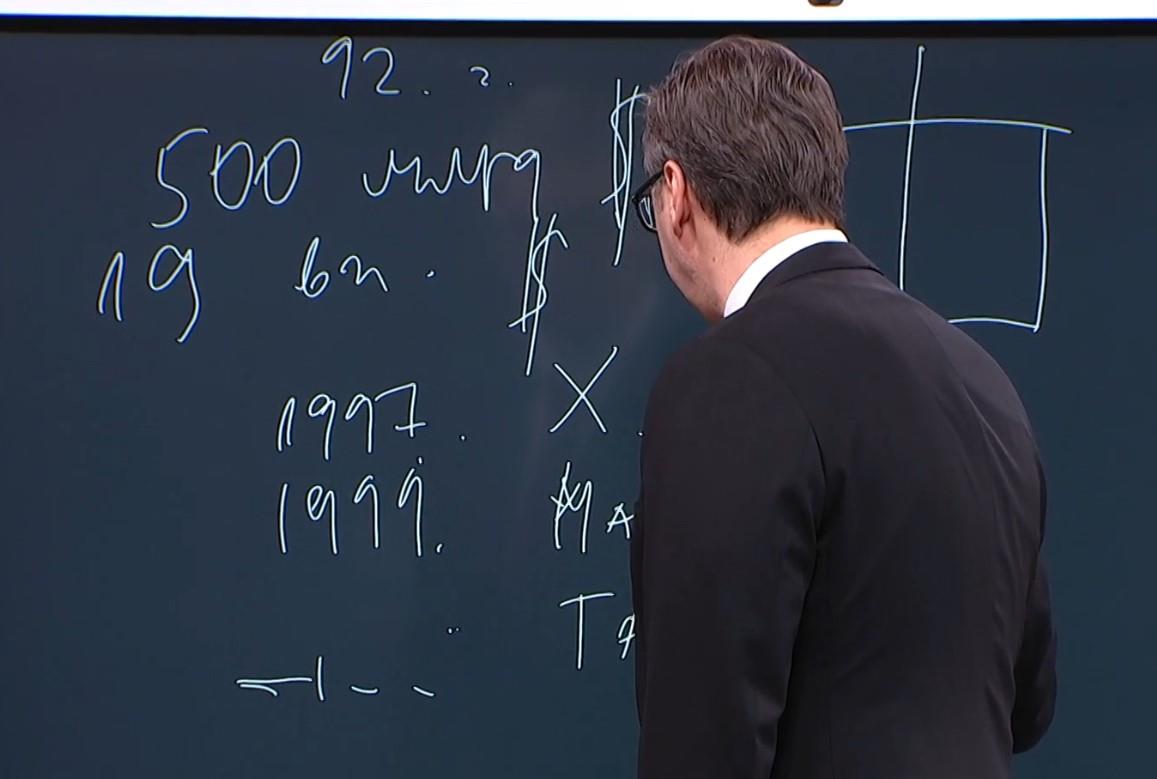 92. г.
500 млрд $
19 вп. $
1997. X
1999. Ма
Та